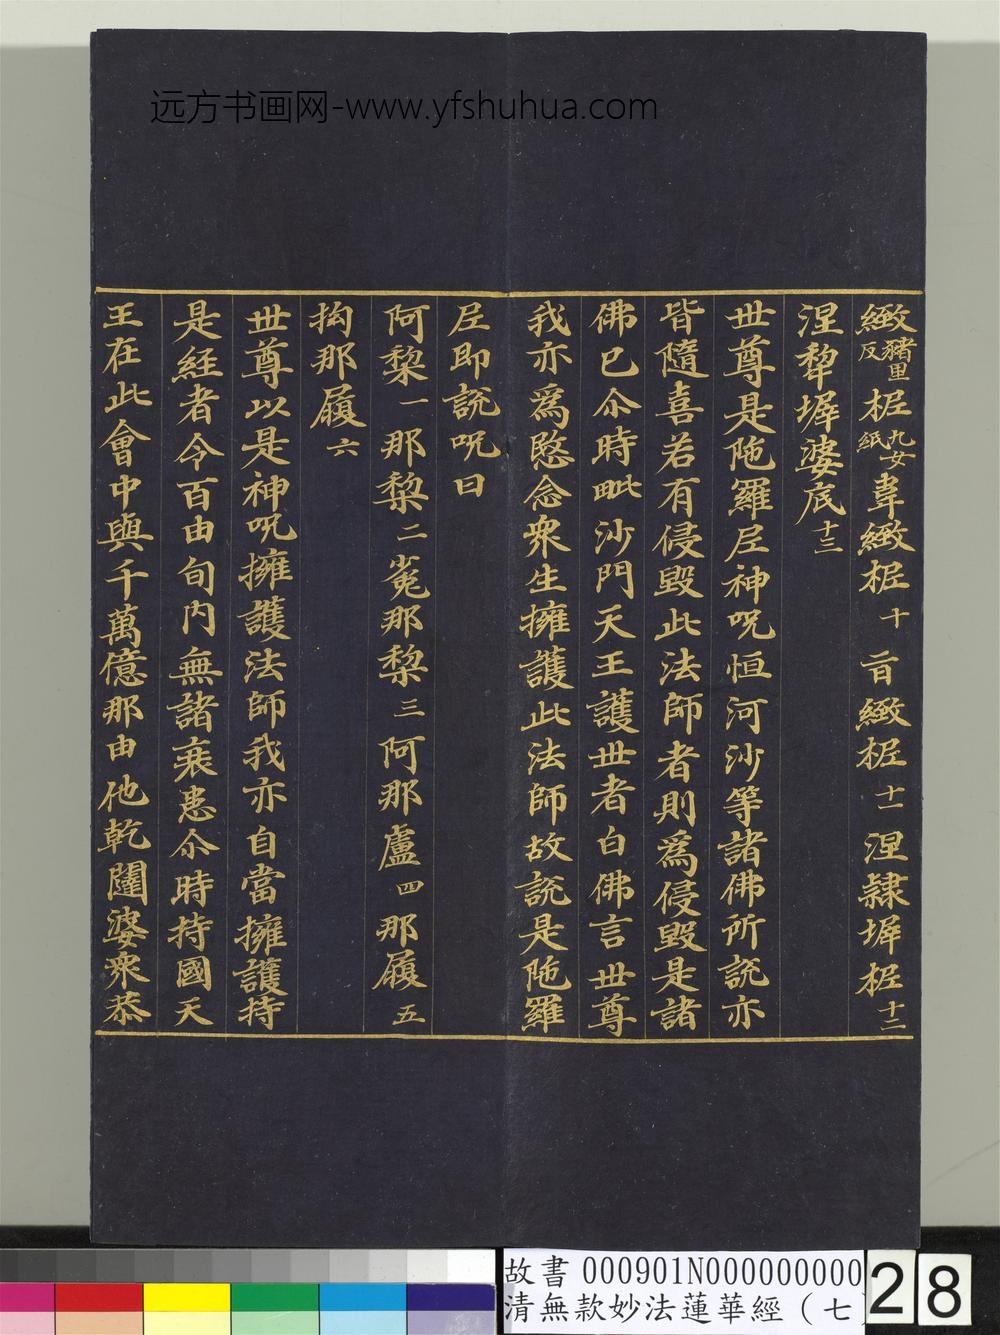 远方书画网-www.yfshuhua.com
緻猪里反柅女九紙韋緻柅十旨緻柅十一涅隸墀柅十二
涅犂墀婆底十三
世尊是陁羅尼神呪恒河沙等諸佛所說亦
皆隨喜若有侵毀此法師者則爲侵毀是諸
佛已尒時毗沙門天王護世者白佛言世尊
我亦爲愍念衆生擁護此法師故說是陁羅
尼即說呪曰
阿棃一那棃二㝹那棃三阿那盧四那履五
拘那履六
世尊以是神呪擁護法師我亦自當擁護持
是經者令百由旬內無諸衰患尒時持國天
王在此會中與千萬億那由他乾闥婆衆恭
故書 000901N000000000
清無款妙法蓮華經（七）
28